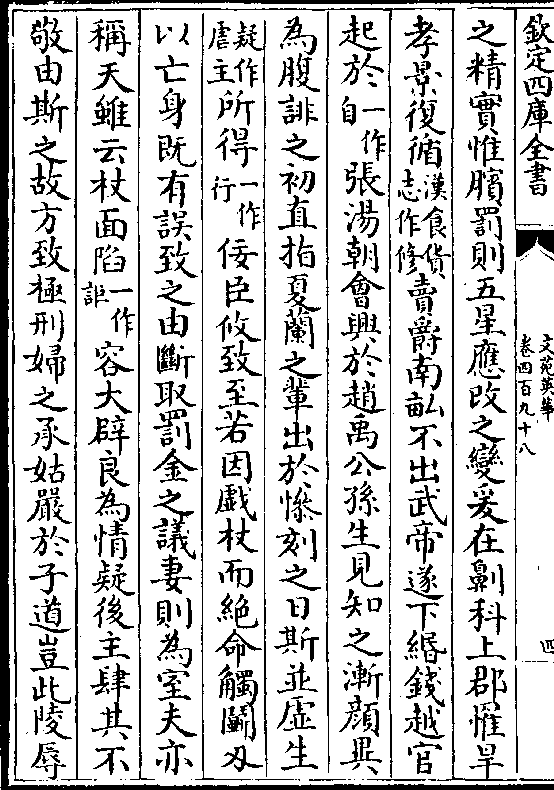 欽定四庫全書
文苑英華
卷四百九十八
四
之精實惟臏罰則五星應改之變爰在劓科上郡惟旱
孝景復循漢食貨志作修賣爵南畝不出武帝遂下緡錢越官
起於一作自張湯朝會興於趙禹公孫生見知之漸顔異
為腹誹之初直指夏蘭之輩出於慘刻之日斯並虚生
疑作虐主所得一作行佞臣攸致至若因戲杖而絶命觸鬭刃
以亡身既有誤致之由斷取罰金之議妻則為室夫亦
稱天雖云杖面陷一作詎容大辟良為情疑後主肆其不
敬由斯之故方致極刑婦之承姑嚴於子道豈此陵辱